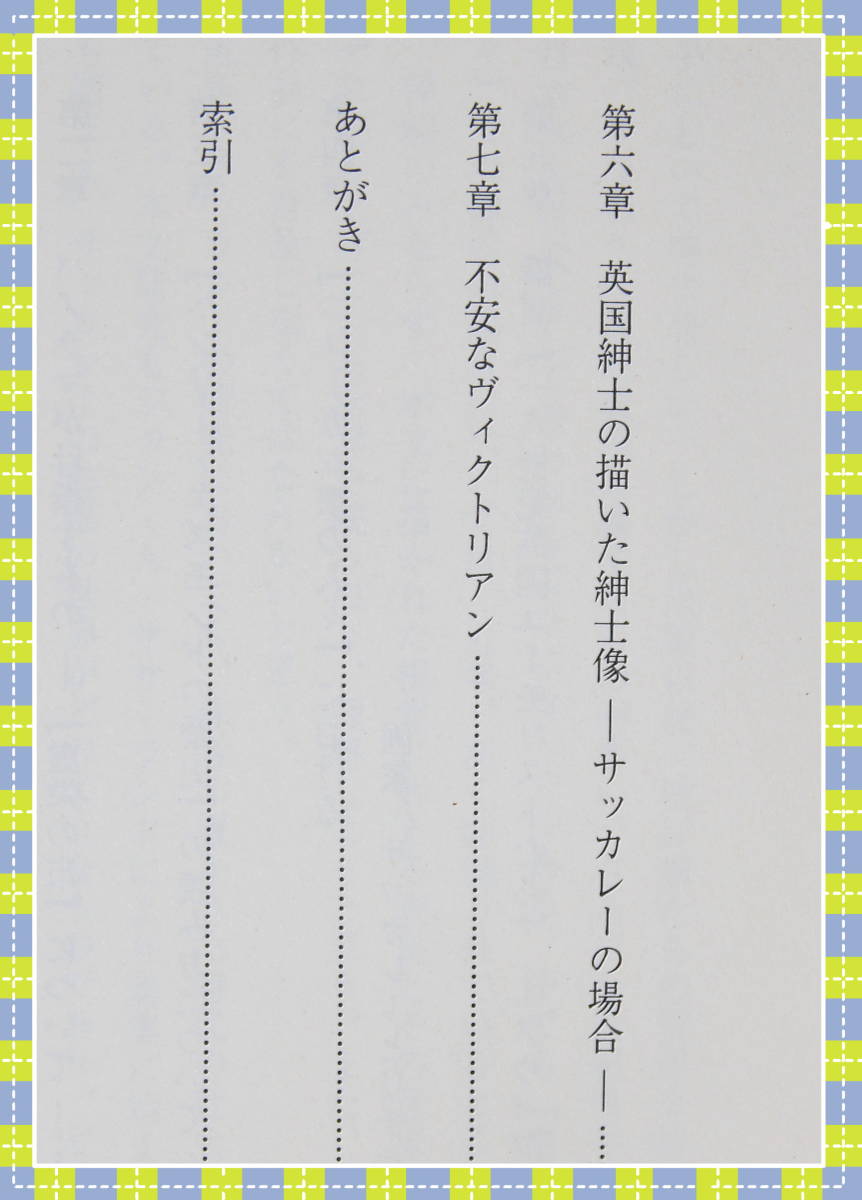 第六章　英国紳士の描いた紳士像 ―サッカレーの場合― …
第七章　不安なヴィクトリアン ……………………………
あとがき ……………………………………………………
索引 …………………………………………………………